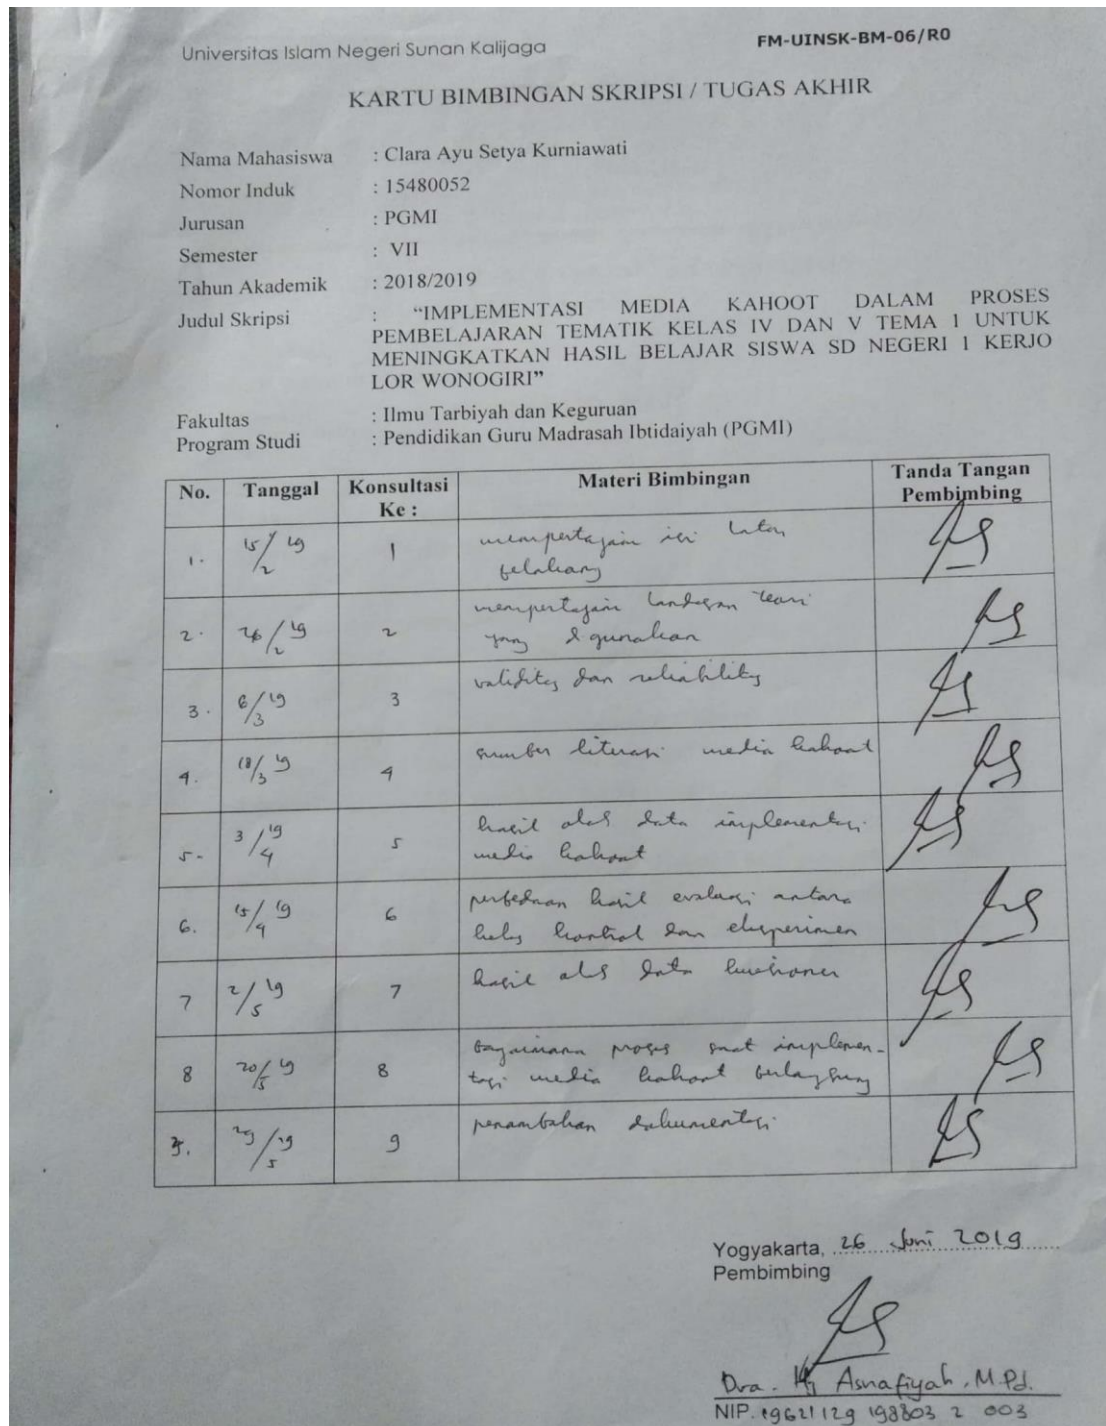 Universitas Islam Negeri Sunan Kalijaga
FM-UINSK-BM-06/R0
KARTU BIMBINGAN SKRIPSI / TUGAS AKHIR
Nama Mahasiswa : Clara Ayu Setya Kurniawati
Nomor Induk : 15480052
Jurusan : PGMI
Semester : VII
Tahun Akademik : 2018/2019
Judul Skripsi : “IMPLEMENTASI MEDIA KAHOOT DALAM PROSES
PEMBELAJARAN TEMATIK KELAS IV DAN V TEMA 1 UNTUK
MENINGKATKAN HASIL BELAJAR SISWA SD NEGERI 1 KERJO
LOR WONOGIRI”
Fakultas : Ilmu Tarbiyah dan Keguruan
Program Studi : Pendidikan Guru Madrasah Ibtidaiyah (PGMI)
No. Tanggal Konsultasi Ke : Materi Bimbingan Tanda Tangan Pembimbing
1. 15/2 19 1 mempertajam isi latar
belakang
2. 26/2 19 2 mempertajam landasan teori
yang digunakan
3. 6/3 19 3 validitas dan reliabilitas
4. 18/3 19 4 sumber literasi media kahoot
5. 3/4 19 5 hasil olah data implementasi
media kahoot
6. 15/4 19 6 perbedaan hasil evaluasi antara
kelas kontrol dan eksperimen
7 2/5 19 7 hasil olah data kuesioner
8 20/5 19 8 bagaimana proses saat implemen-
tasi media kahoot berlangsung
29/5 19 9 penambahan dokumentasi
Yogyakarta, 26 Juni 2019
Pembimbing
Dra. Hj Asnafiyah, M.Pd.
NIP. 19621129 198803 2 003